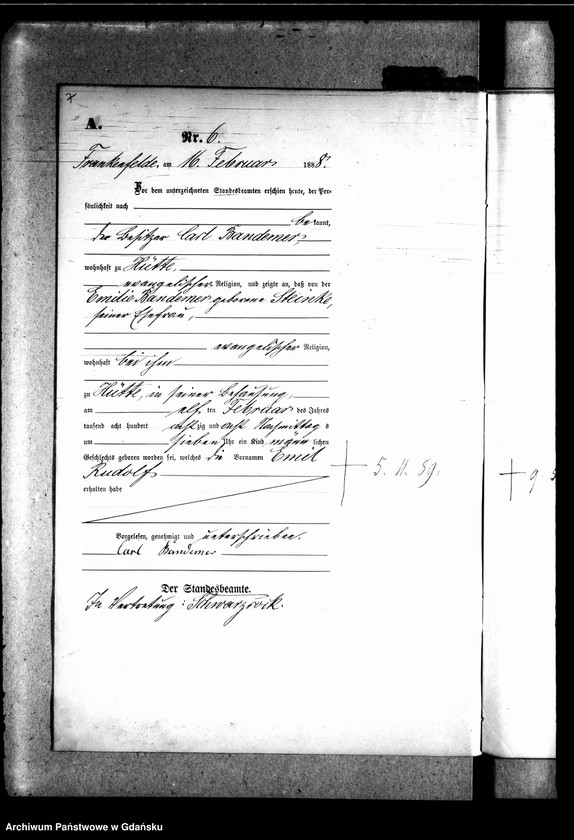 A.
Nr. 6.
Frankenfelde, am 16. Februar 1888.
Vor dem unterzeichneten Standesbeamten erschien heute, der Per-
sönlichkeit nach
bekannt,
der Besitzer Carl Bandemer,
wohnhaft zu Hütte,
evangelischer Religion, und zeigte an, daß von der
Emilie Bandemer geborene Steinke,
seiner Ehefrau,
evangelischer Religion,
wohnhaft bei ihm
zu Hütte, in seiner Behausung,
am elf ten Februar des Jahres
tausend acht hundert achtzig und acht Nachmittags
um sieben Uhr ein Kind männlichen
Geschlechts geboren worden sei, welches die Vornamen Emil
Rudolf
erhalten habe
+ 5. 11. 59.
+ 9.
Vorgelesen, genehmigt und unterschrieben.
Carl Bandemer
Der Standesbeamte.
In Vertretung:
Archiwum Państwowe w Gdańsku